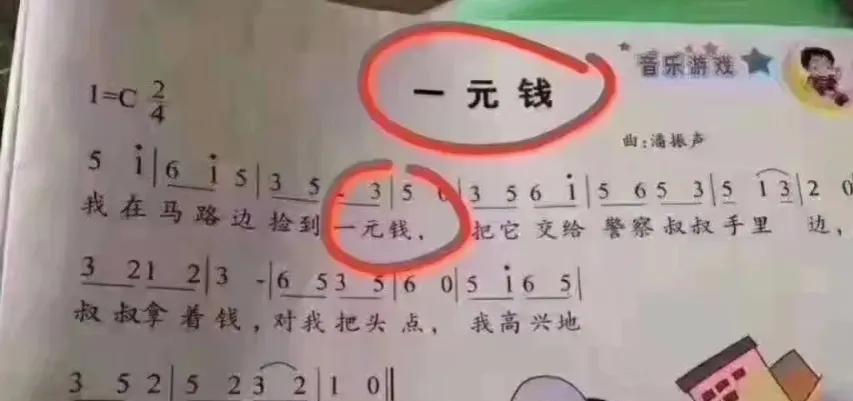 音乐游戏
一元钱
1=C 2/4
曲:潘振声
5 i|6 i 5|3 5 - 3|5 0|3 5 6 i|5 6 5 3|5 1 3|2 0
我在马路边捡到一元钱, 把它交给警察叔叔手里边,
3 2 1 2|3 -|6 5 3 5|6 0|5 i 6 5|
叔叔拿着钱,对我把头点, 我高兴地
3 5 2|5 2 3 2|1 0‖